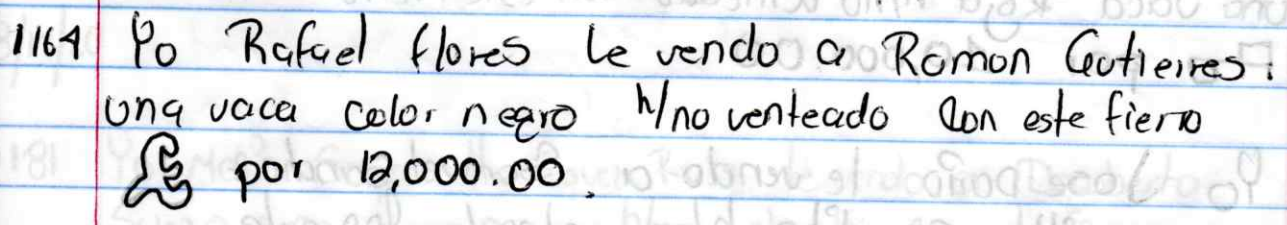 1164 Yo Rafael flores le vendo a Ramon Gutierres:
una vaca color negro h/no venteado Con este fierro
por 12,000.00.